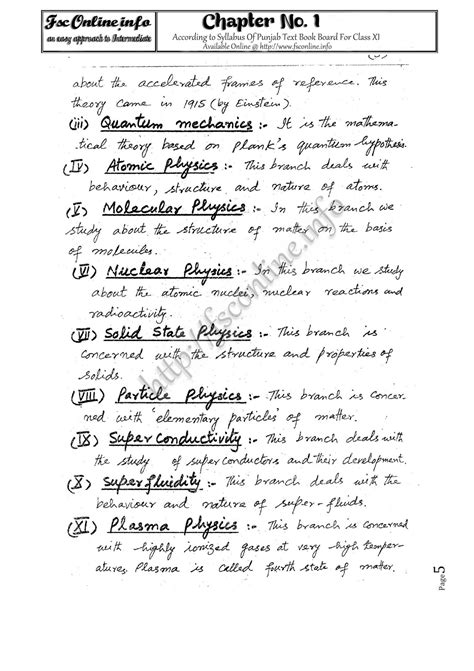 FscOnline.info
an easy approach to Intermediate
Chapter No. 1
According to Syllabus Of Punjab Text Book Board For Class XI
Available Online @ http://www.fsconline.info
about the accelerated frames of reference. This
theory came in 1915 (by Einstein).
(iii) Quantum mechanics :- It is the mathema-
tical theory based on Plank's quantum hypothesis
(IV) Atomic Physics :- This branch deals with
behaviour, structure and nature of atoms.
(V) Molecular Physics :- In this branch we
study about the structure of matter on the basis
of molecules.
(VI) Nuclear Physics :- In this branch we study
about the atomic nuclei, nuclear reactions and
radioactivity.
(VII) Solid State Physics :- This branch is
concerned with the structure and properties of
solids.
(VIII) Particle Physics :- This branch is concer-
ned with 'elementary particles' of matter.
(IX) Super Conductivity :- This branch deals with
the study of superconductors and their development.
(X) Superfluidity :- This branch deals with the
behaviour and nature of super-fluids.
(XI) Plasma Physics :- This branch is concerned
with highly ionized gases at very high temper-
atures, Plasma is called fourth state of matter.
http://fsconline.info
Page 5